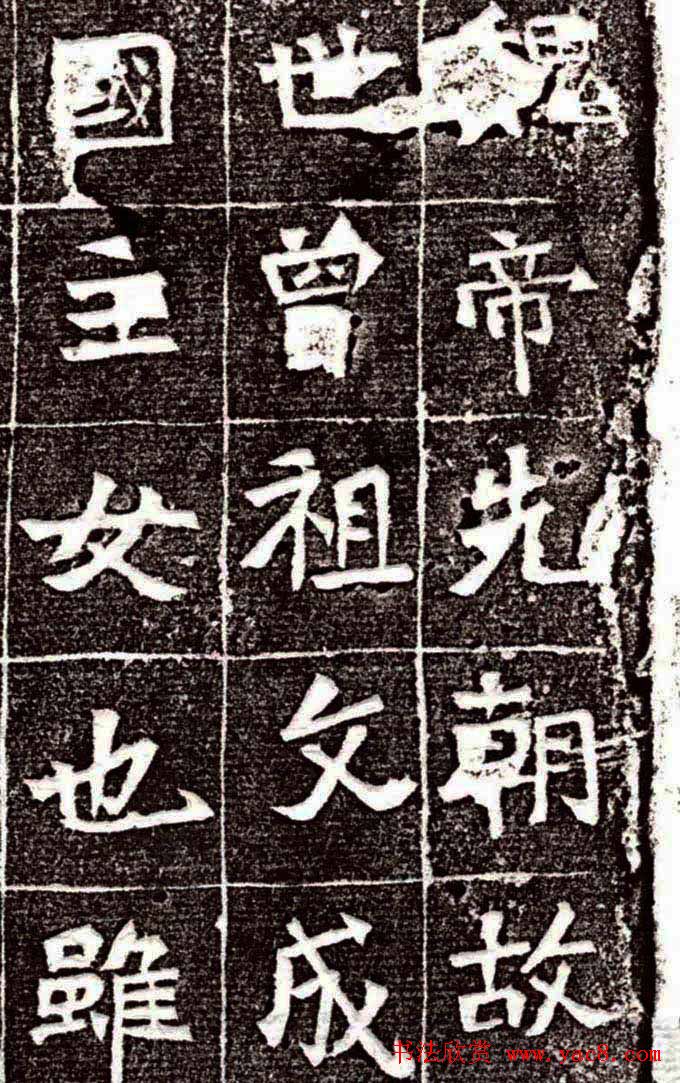 魏帝先朝故
世曾祖文成
國主女也雖
书法欣赏 www.yac8.com